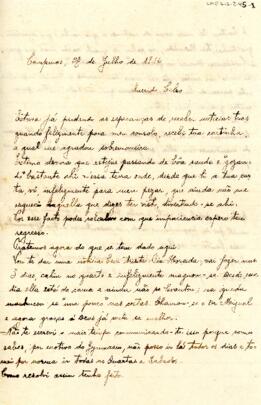 Campinas, 29 de Julho de 1936
Querido Celso
Estava já perdendo as esperanças de receber noticias tuas
quando felizmente para meu consolo, recebi tua cartinha,
a qual me agradou sobremaneira.
Estimo deveras que estejas passando de bôa saude e "gosan-
do" bastante ahi nessa terra onde, desde que li a tua car-
ta vi, infelizmente para meu pezar, que ainda não me
esqueci daquella que dizes ter visto, divertindo-se ahi.
Por esse facto podes calcular com que impaciencia espero teu
regresso.
Tratemos agora do que se tem dado aqui
Vou te dar uma noticia bem triste. Na Horade, vae fazer uns
3 dias, cahiu no quarto e infelizmente magoou-se. Desde esse
dia ella está de cama e ainda não se levantou; na queda
machucou-se "um pouco" nas costas. Chamou-se o Dr. Miguel
e agora graças á Deus já está se melhor.
Não te escrevi a mais tempo communicando-te isso porque como
sabes, por motivo do Gymnasio, não posso ir lá todos os dias e to-
mei por norma ir todas as Quartas e Sabados.
Como resolvi assim tenho feito.